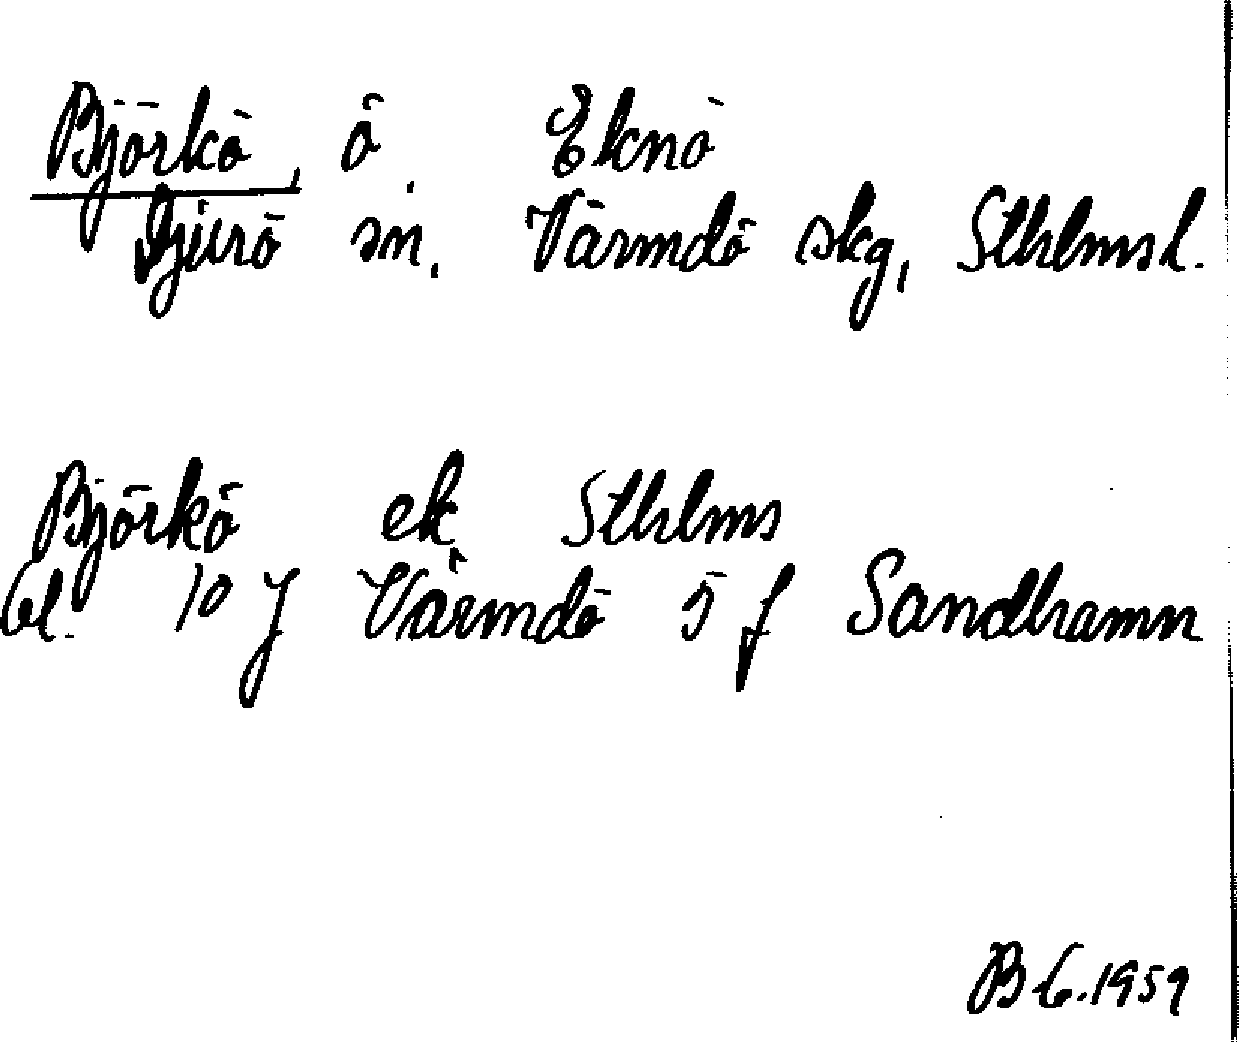 Björkö, ö, Eknö
Djurö sn. Värmdö skg, Sthlms l.
Björkö ek Sthlms
bl. 10 J Värmdö 5 f Sandhamn
1959